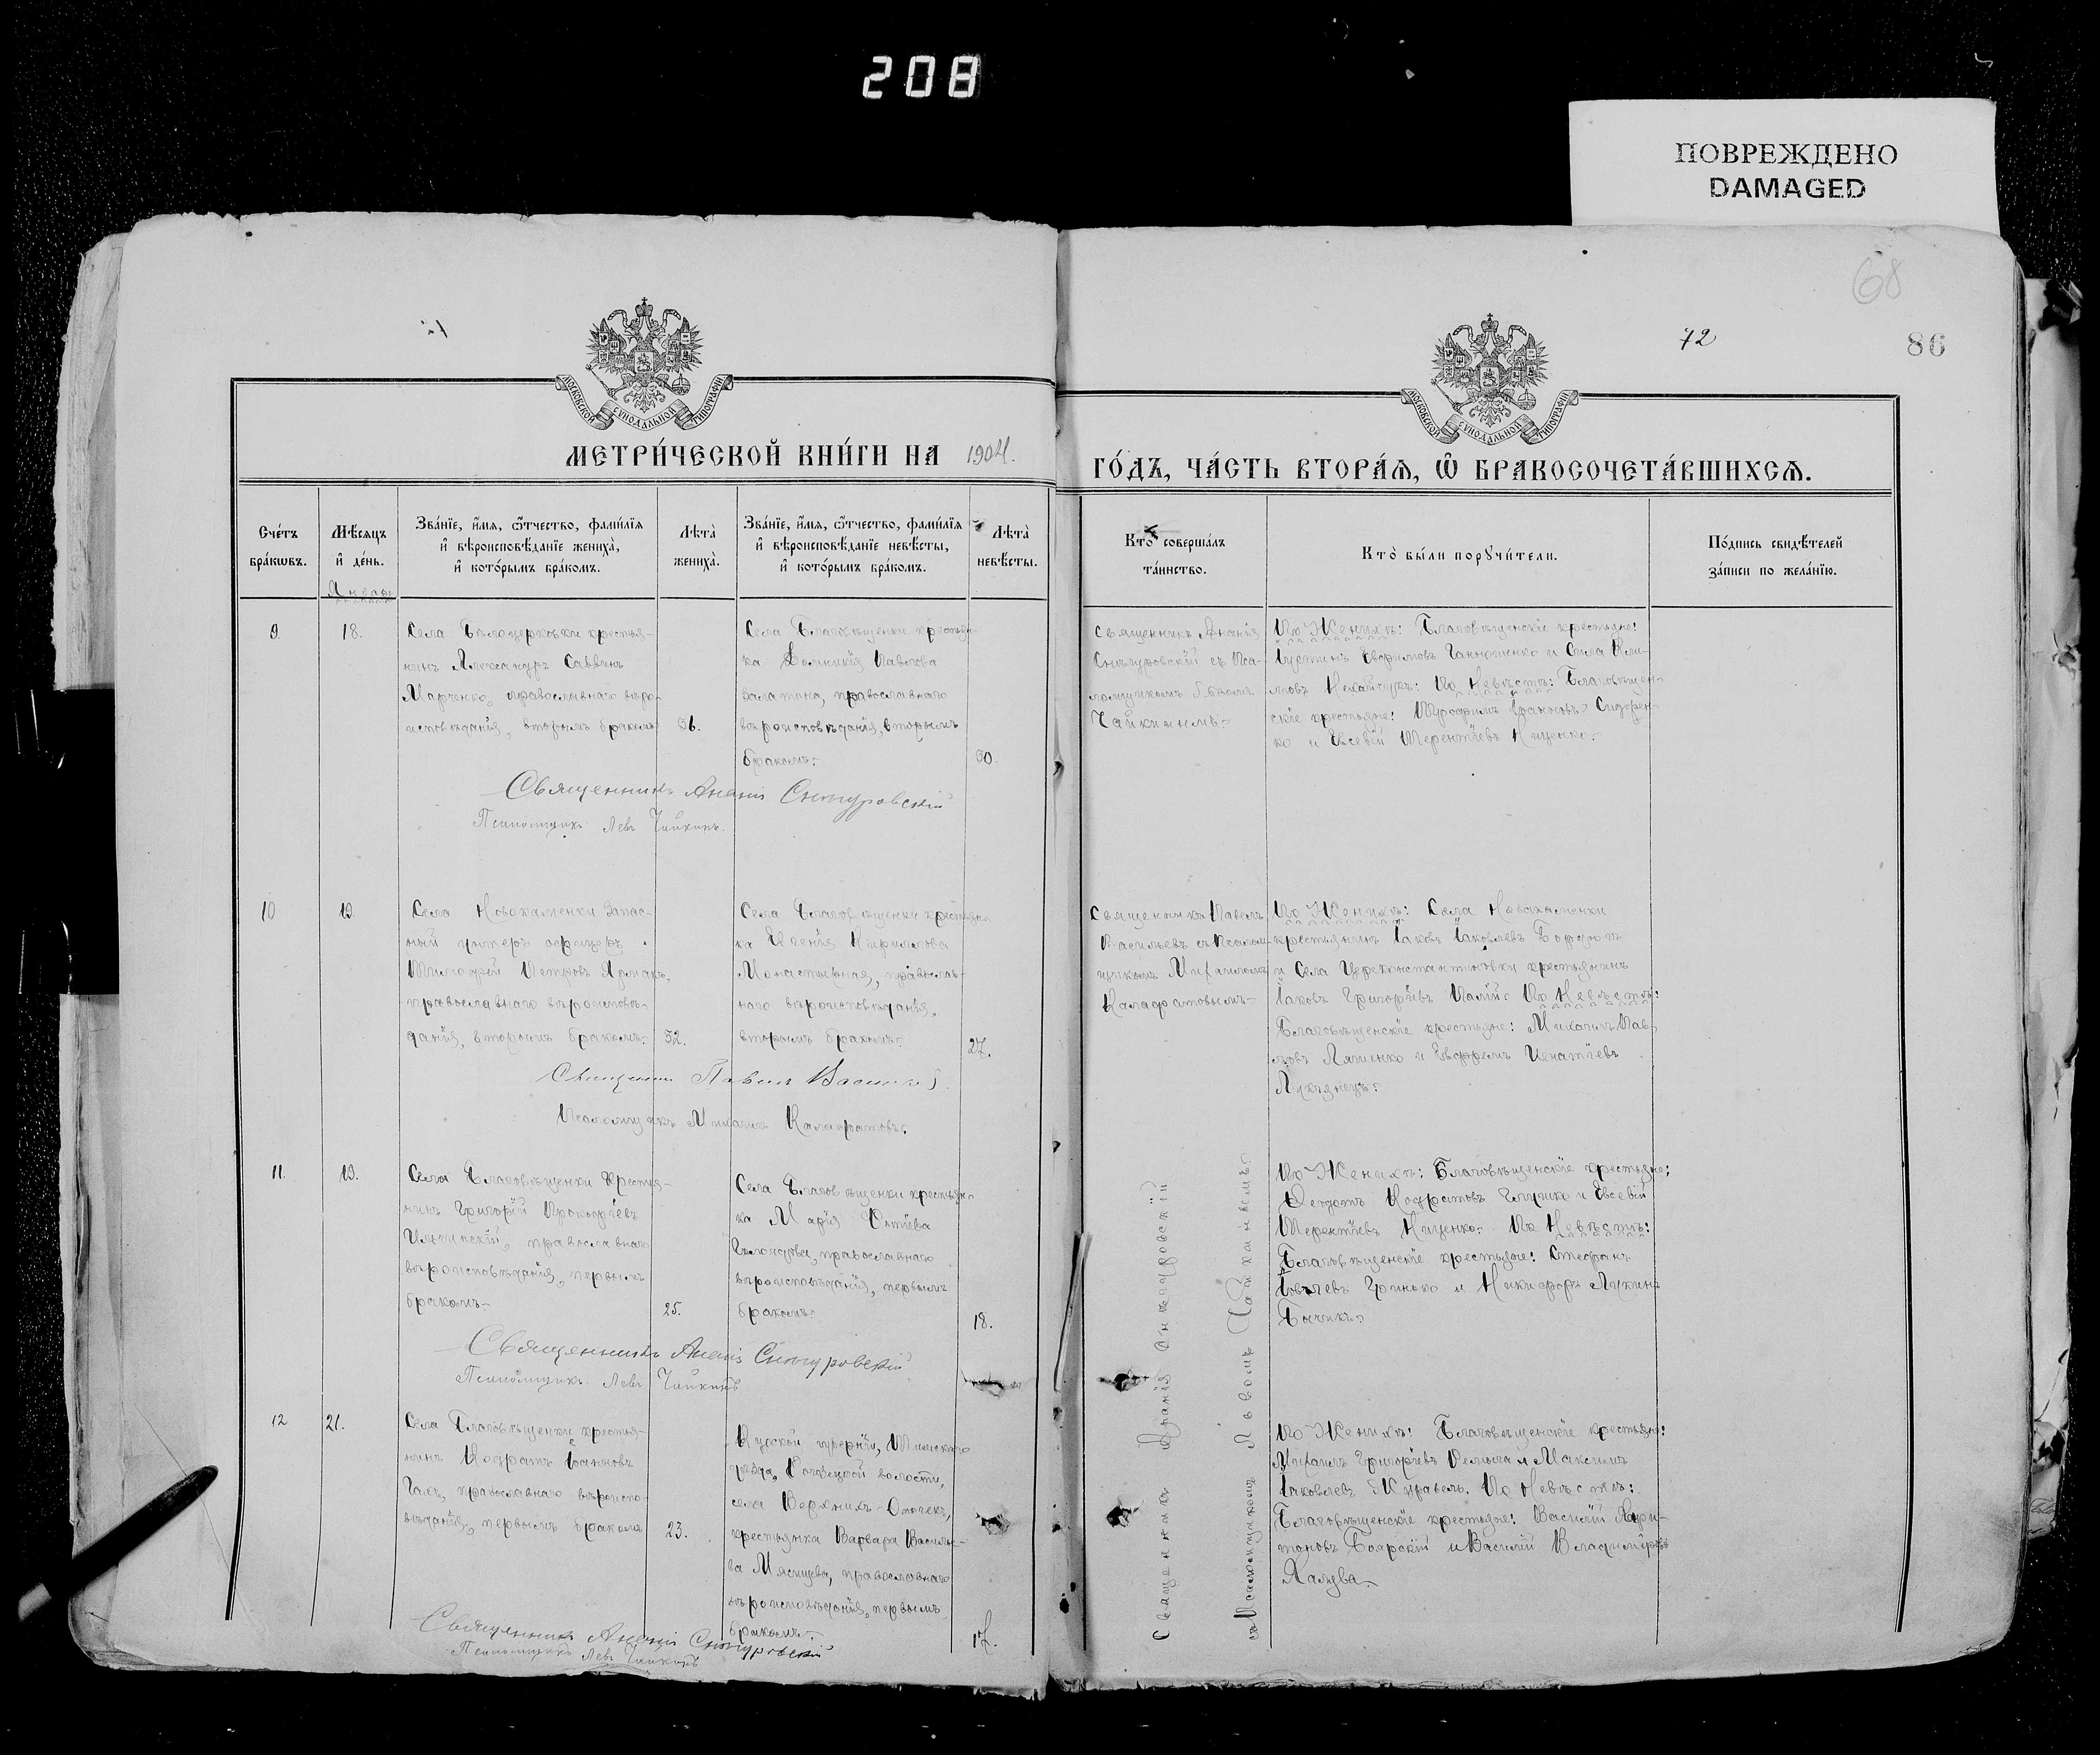 208
ПОВРЕЖДЕНО
DAMAGED
68
72
86
МОСКОВСКОЙ СѴНОДАЛЬНОЙ ТИПОГРАФИИ
МОСКОВСКОЙ СѴНОДАЛЬНОЙ ТИПОГРАФИИ
МЕТРИ́ЧЕСКОЙ КНИ́ГИ НА 1904.
ГО́ДЪ, ЧА́СТЬ ВТОРА́Ѧ, Ѽ БРАКОСОЧЕТА́ВШИХСѦ.
Сче́тъ
бра́кѡвъ.
Мѣ́сѧцъ
и҆ де́нь.
Январь
Зва́нїе, и҆́мѧ, ѻ҆́тчество, фами́лїѧ
и҆ вѣроисповѣ́данїе жениха̀,
и҆ кото́рымъ бра́комъ.
Лѣ́та
жениха̀.
Зва́нїе, и҆́мѧ, ѻ҆́тчество, фами́лїѧ
и҆ вѣроисповѣ́данїе невѣ́сты,
и҆ кото́рымъ бра́комъ.
Лѣ́та
невѣ́сты.
Кто̀ соверша́лъ
та́инство.
Кто̀ бы́ли порꙋчи́тели.
По́дпись свидѣ́телей
за́писи по жела́нїю.
9.
18.
Села Бѣлоцерковки крестья-
нинъ Александръ Саввинъ
Марченко, православнаго вѣро-
исповѣданія, вторымъ бракомъ
36.
Села Благовѣщенки крестьян-
ка Домникія Павлова
православнаго
вѣроисповѣданія, вторымъ
бракомъ.
30.
Священникъ Ананія
Снѣгуровскій съ Пса-
ломщикомъ Львомъ
Чайкинымъ.
По Женихѣ: Благовѣщенскіе крестьяне:
Іустинъ Евфимовъ и
По Невѣстѣ: Благовѣщен-
скіе крестьяне: Трофимъ Іоанновъ Сидорен-
ко и Евсевій Терентіевъ Ниценко.
Священникъ Ананія Снѣгуровскій
Псаломщикъ Левъ Чайкинъ.
10
19.
Села Новокаменки запас-
ный унтеръ офицеръ
Тимофей Петровъ Ярмакъ,
православнаго вѣроисповѣ-
данія, вторымъ бракомъ.
32.
Села Благовѣщенки крестьян-
ка Евгенія Кириллова
Монастырная, православ-
наго вѣроисповѣданія,
вторымъ бракомъ.
27.
Священникъ Павелъ
Васильевъ съ Псалом-
щикомъ Михаиломъ
Калафатовымъ
По Женихѣ: Села Новокаменки
крестьянинъ Іаковъ Іаковлевъ
и Села Цареконстантиновки крестьянинъ
Іаковъ Григоріевъ Палій. По Невѣстѣ:
Благовѣщенскіе крестьяне: Михаилъ Пав-
ловъ Ляшенко и Евфимъ Игнатіевъ
Лукьянецъ.
Священникъ Павелъ Васильевъ
Псаломщикъ Михаилъ Калафатовъ.
11.
19.
Села Благовѣщенки Крестья-
нинъ Григорій Прокофіевъ
Ильчинскій, православнаго
вѣроисповѣданія, первымъ
бракомъ.
25.
Села Благовѣщенки крестьян-
ка Марія Фотіева
православнаго
вѣроисповѣданія, первымъ
бракомъ.
18.
Священникъ Ананія Снѣгуровскій
съ Псаломщикомъ Львомъ Чайкинымъ.
По Женихѣ: Благовѣщенскіе крестьяне:
Федотъ Кодратовъ Глушко и Евсевій
Терентіевъ Ниценко. По Невѣстѣ:
Благовѣщенскіе крестьяне: Стефанъ
Іовлевъ Гринько и Никифоръ Лукинъ
Бычикъ.
Священникъ Ананія Снѣгуровскій
Псаломщикъ Левъ Чайкинъ
12
21.
Села Благовѣщенки крестья-
нинъ Кодратъ Іоанновъ
Галъ, православнаго вѣроиспо-
вѣданія, первымъ бракомъ
23.
Курской губерніи, Тимскаго
уѣзда, волости,
села Верхнихъ-Апочекъ,
крестьянка Варвара Василье-
ва Мясищева, православнаго
вѣроисповѣданія, первымъ
бракомъ.
17.
По Женихѣ: Благовѣщенскіе крестьяне:
Михаилъ Григоріевъ и Максимъ
Іаковлевъ Журавель. По Невѣстѣ:
Благовѣщенскіе крестьяне: Василій Хари-
тоновъ Боярскій и Василій Владиміровъ
Халява.
Священникъ Ананія Снѣгуровскій
Псаломщикъ Левъ Чайкинъ